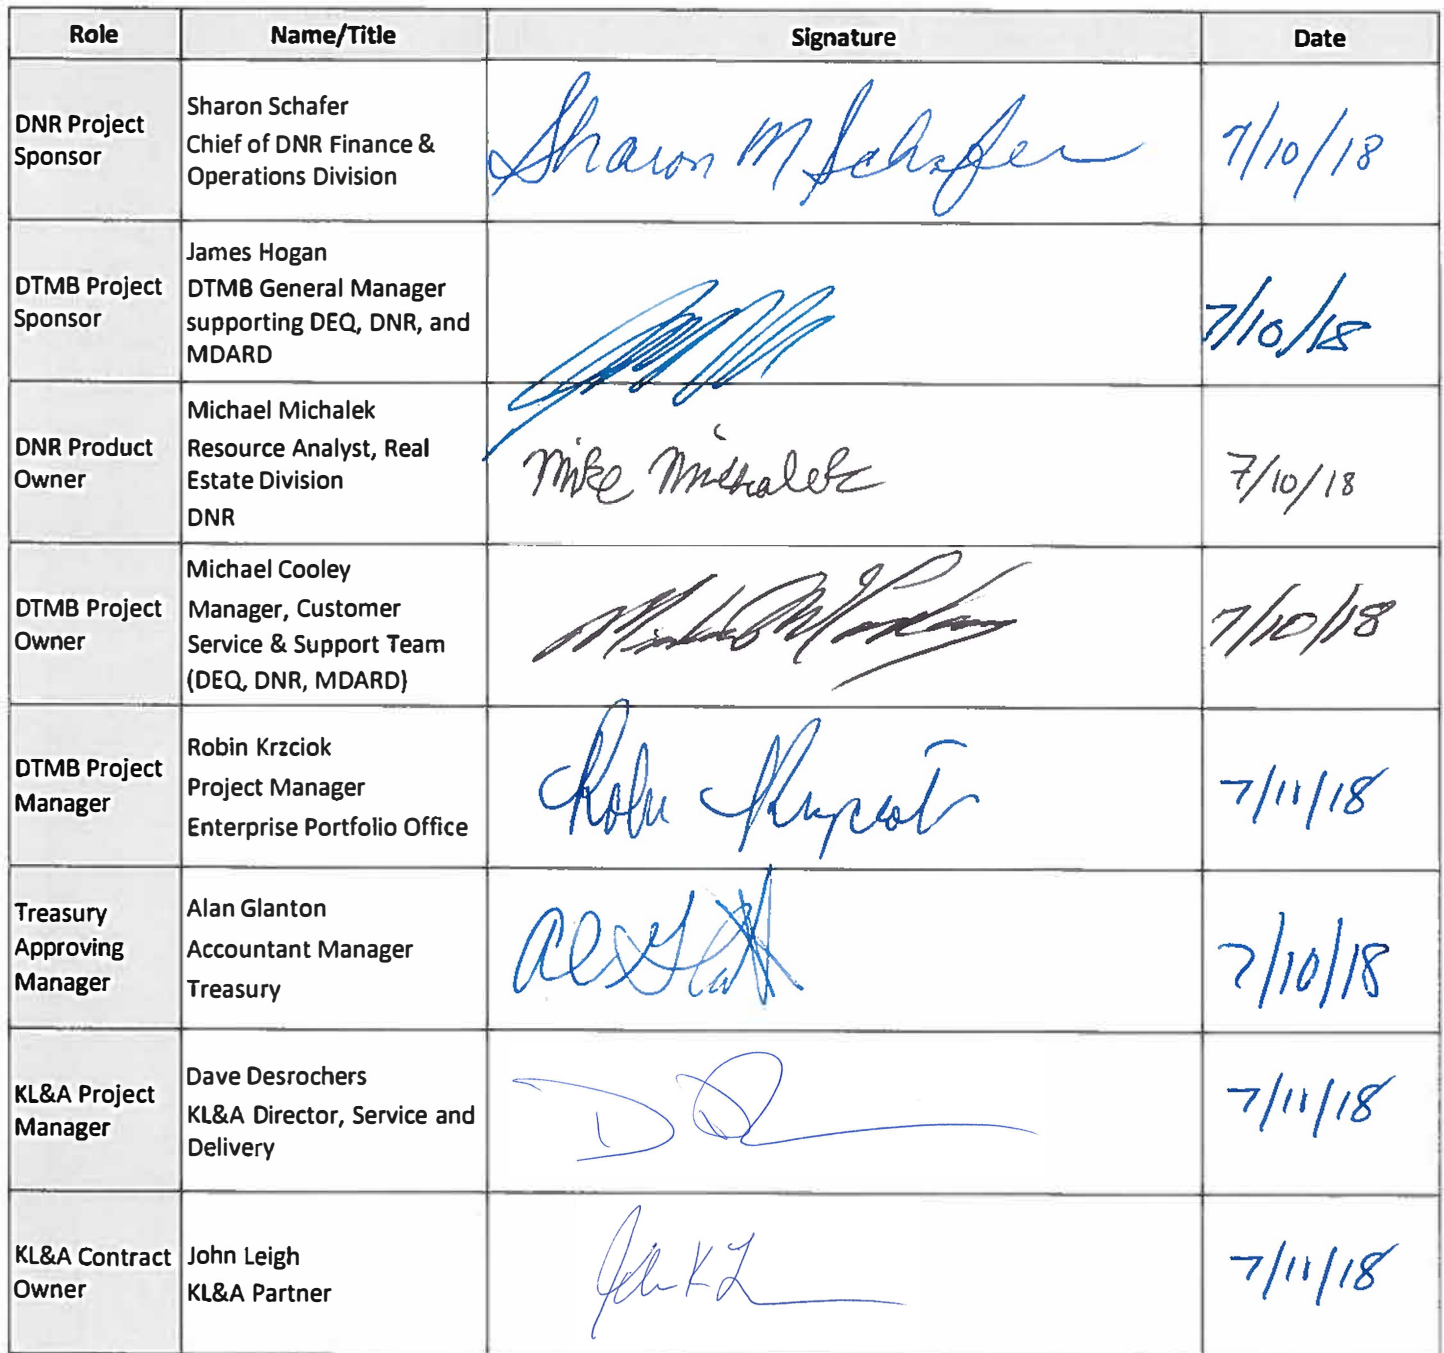 Role Name/Title Signature Date
DNR Project
Sponsor
Sharon Schafer
Chief of DNR Finance &
Operations Division
Sharon M Schafer
7/10/18
DTMB Project
Sponsor
James Hogan
DTMB General Manager
supporting DEQ, DNR, and
MDARD
7/10/18
DNR Product
Owner
Michael Michalek
Resource Analyst, Real
Estate Division
DNR
Mike Michalek
7/10/18
DTMB Project
Owner
Michael Cooley
Manager, Customer
Service & Support Team
(DEQ, DNR, MDARD)
7/10/18
DTMB Project
Manager
Robin Krzciok
Project Manager
Enterprise Portfolio Office
7/11/18
Treasury
Approving
Manager
Alan Glanton
Accountant Manager
Treasury
7/10/18
KL&A Project
Manager
Dave Desrochers
KL&A Director, Service and
Delivery
7/11/18
KL&A Contract
Owner
John Leigh
KL&A Partner
7/11/18